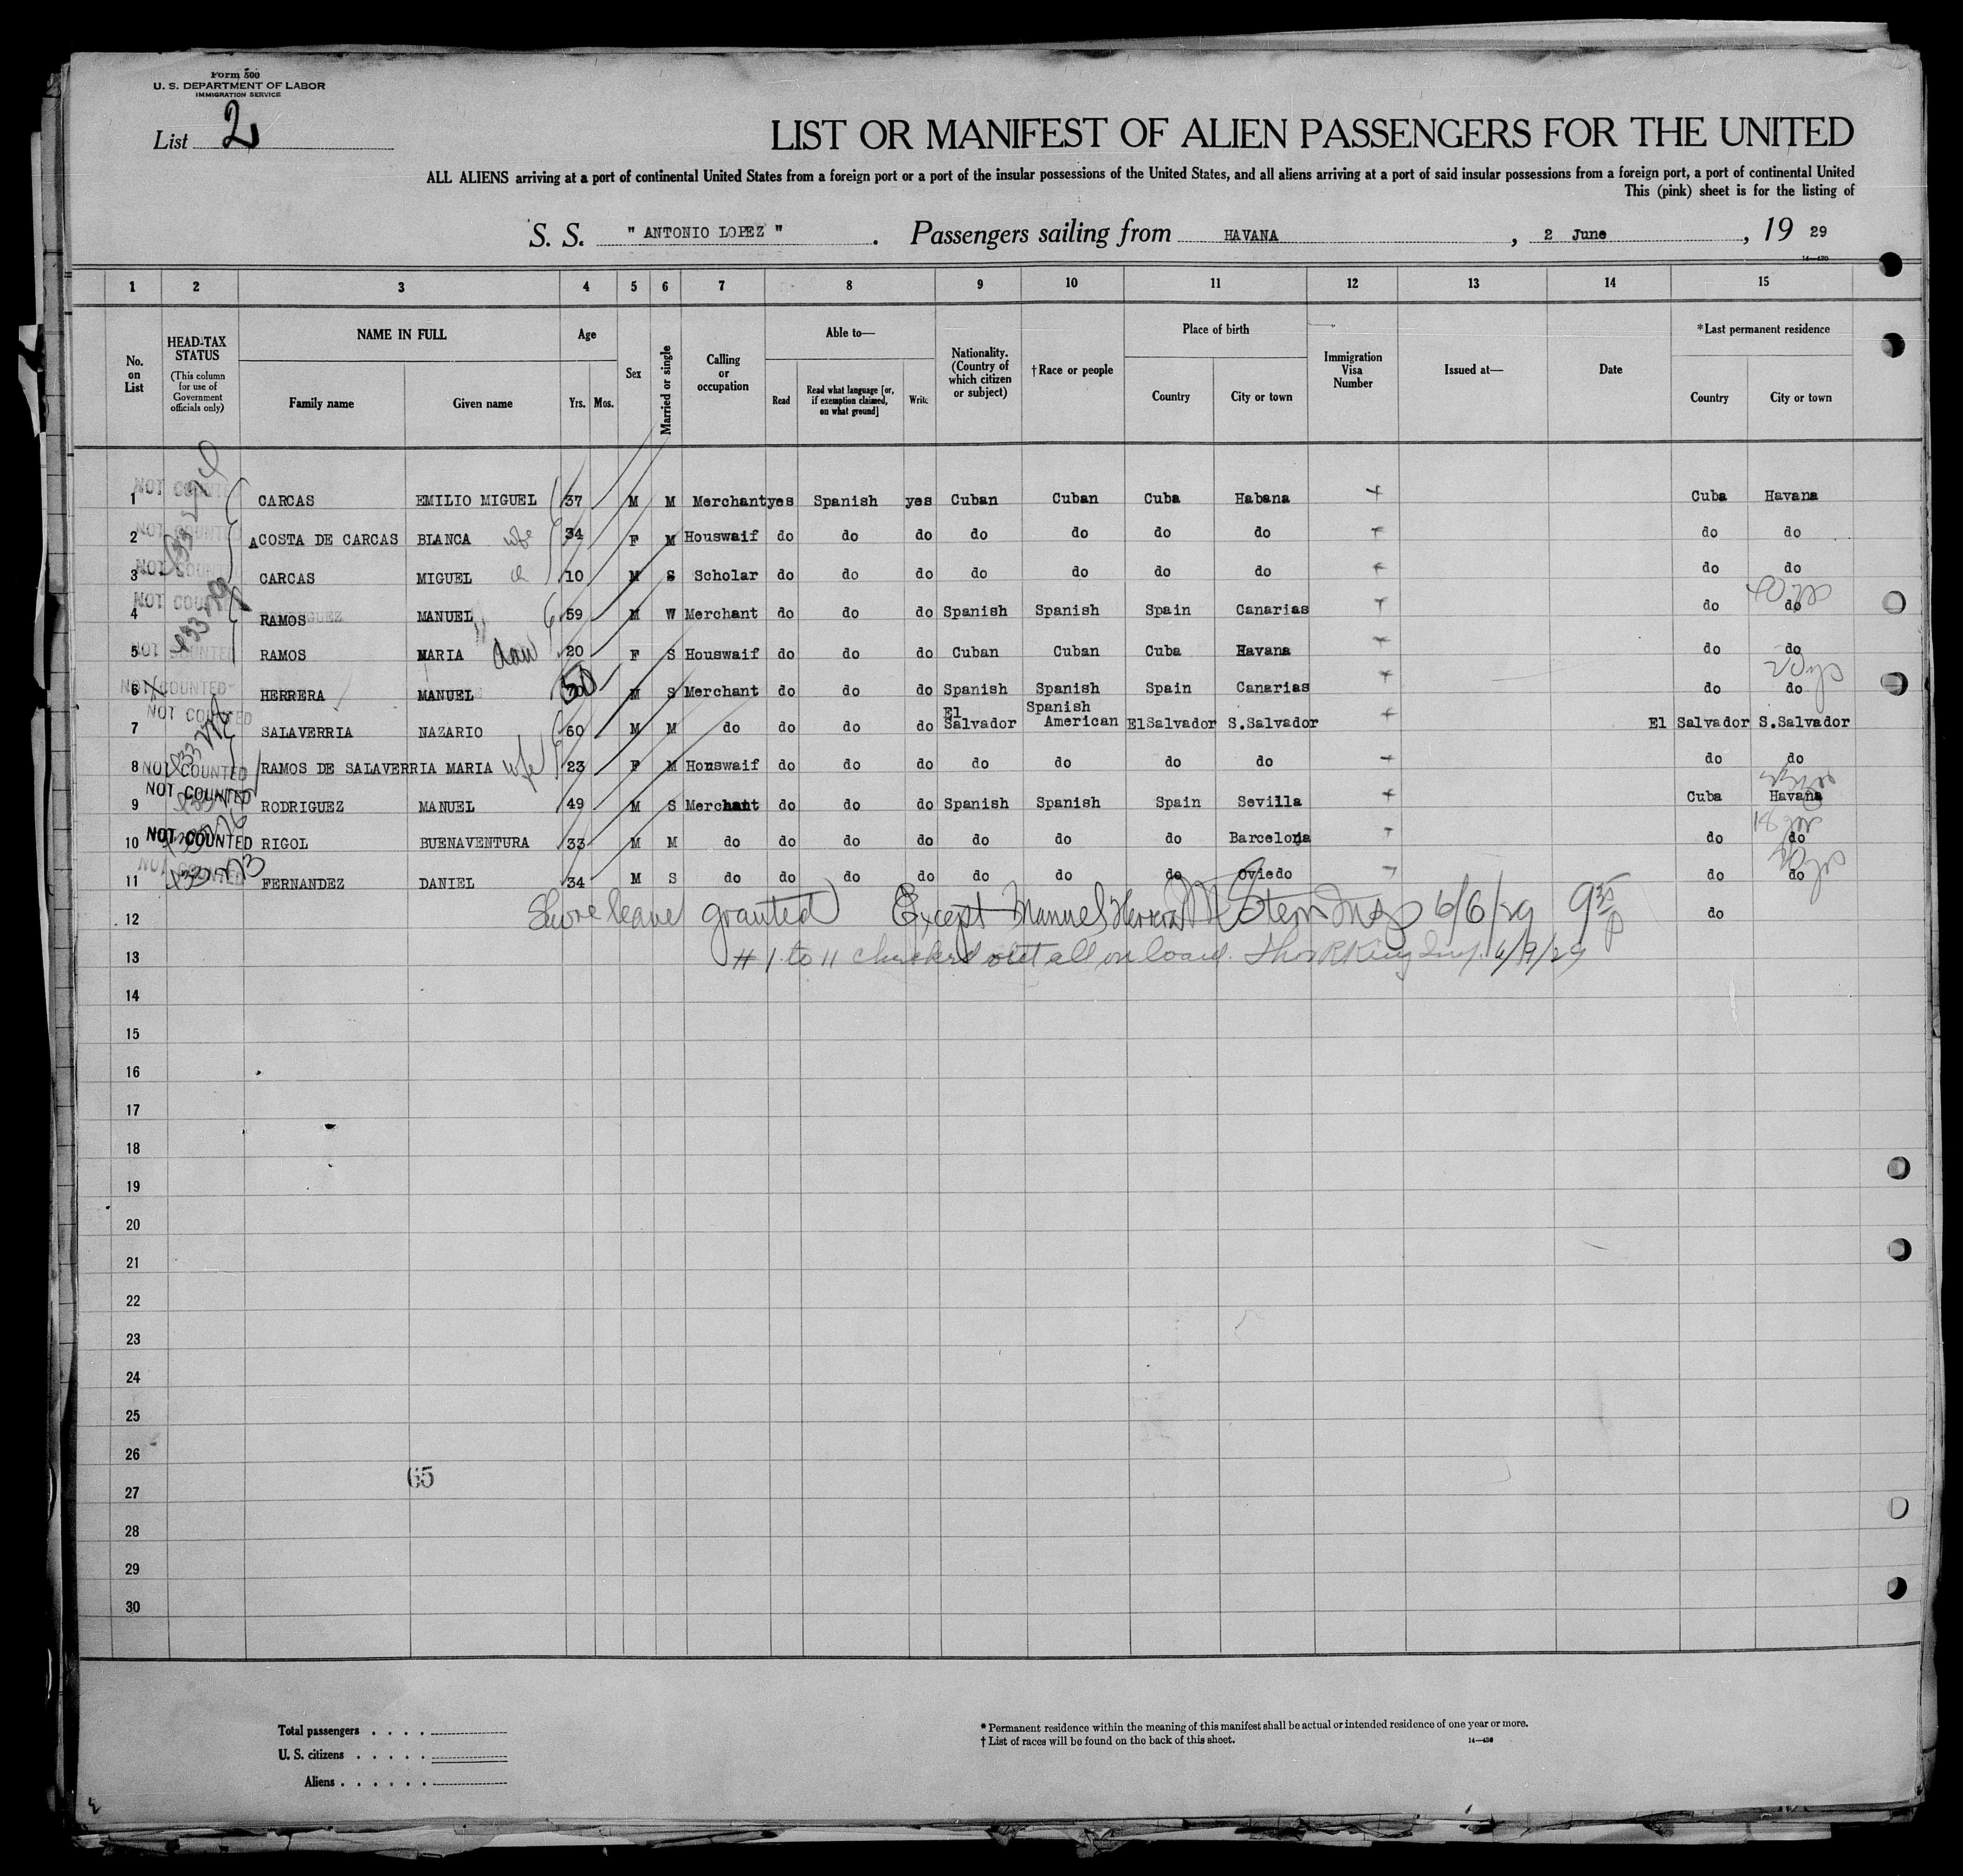 Form 500
U. S. DEPARTMENT OF LABOR
IMMIGRATION SERVICE
List 2
LIST OR MANIFEST OF ALIEN PASSENGERS FOR THE UNITED
ALL ALIENS arriving at a port of continental United States from a foreign port or a port of the insular possessions of the United States, and all aliens arriving at a port of said insular possessions from a foreign port, a port of continental United
This (pink) sheet is for the listing of
S. S. " ANTONIO LOPEZ " . Passengers sailing from HAVANA , 2 June , 19 29
14—430
1 2 3 4 5 6 7 8 9 10 11 12 13 14 15
No. on List
HEAD-TAX STATUS (This column for use of Government officials only)
NAME IN FULL Family name Given name
Age Yrs. Mos.
Sex
Married or single
Calling or occupation
Able to— Read Read what language [or, if exemption claimed, on what ground] Write
Nationality. (Country of which citizen or subject)
†Race or people
Place of birth Country City or town
Immigration Visa Number
Issued at—
Date
*Last permanent residence Country City or town
1 NOT COUNTED CARCAS EMILIO MIGUEL 37 M M Merchant yes Spanish yes Cuban Cuban Cuba Habana Cuba Havana
2 NOT COUNTED ACOSTA DE CARCAS BLANCA wfe 34 F M Houswaif do do do do do do do do do
3 NOT COUNTED CARCAS MIGUEL 10 M S Scholar do do do do do do do do do
4 NOT COUNTED RAMOS MANUEL 59 M W Merchant do do do Spanish Spanish Spain Canarias do do
5 NOT COUNTED RAMOS MARIA dau 20 F S Houswaif do do do Cuban Cuban Cuba Havana do do
6 NOT COUNTED HERRERA MANUEL 50 M S Merchant do do do Spanish Spanish Spain Canarias do do 20 ys
7 NOT COUNTED SALAVERRIA NAZARIO 60 M M do do do do El Salvador Spanish American ElSalvador S.Salvador El Salvador S.Salvador
8 NOT COUNTED RAMOS DE SALAVERRIA MARIA wfe 23 F M Houswaif do do do do do do do do do
9 NOT COUNTED RODRIGUEZ MANUEL 49 M S Merchant do do do Spanish Spanish Spain Sevilla Cuba Havana
10 NOT COUNTED RIGOL BUENAVENTURA 33 M M do do do do do do do Barcelona do do
11 NOT COUNTED FERNANDEZ DANIEL 34 M S do do do do do do do Oviedo do do
12 Shore leave granted Except Manuel Herrera Stern Insp 6/6/29 9 35 p do
13 # 1 to 11 checked out all on board. Thos R King Insp. 6/9/29
14
15
16
17
18
19
20
21
22
23
24
25
26
65
27
28
29
30
Total passengers . . . .
U. S. citizens . . . . .
Aliens . . . . . .
* Permanent residence within the meaning of this manifest shall be actual or intended residence of one year or more.
† List of races will be found on the back of this sheet.
14—430